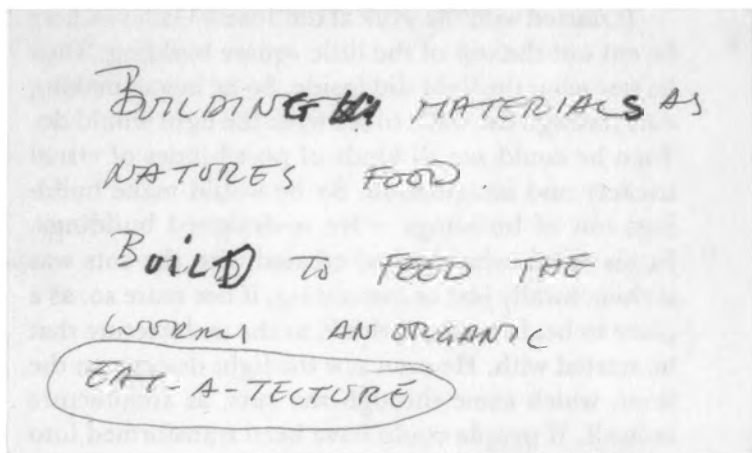 BUILDING MATERIALS AS
NATURES FOOD.
BUILD TO FEED THE
WORMS AN ORGANIC
EAT-A-TECTURE